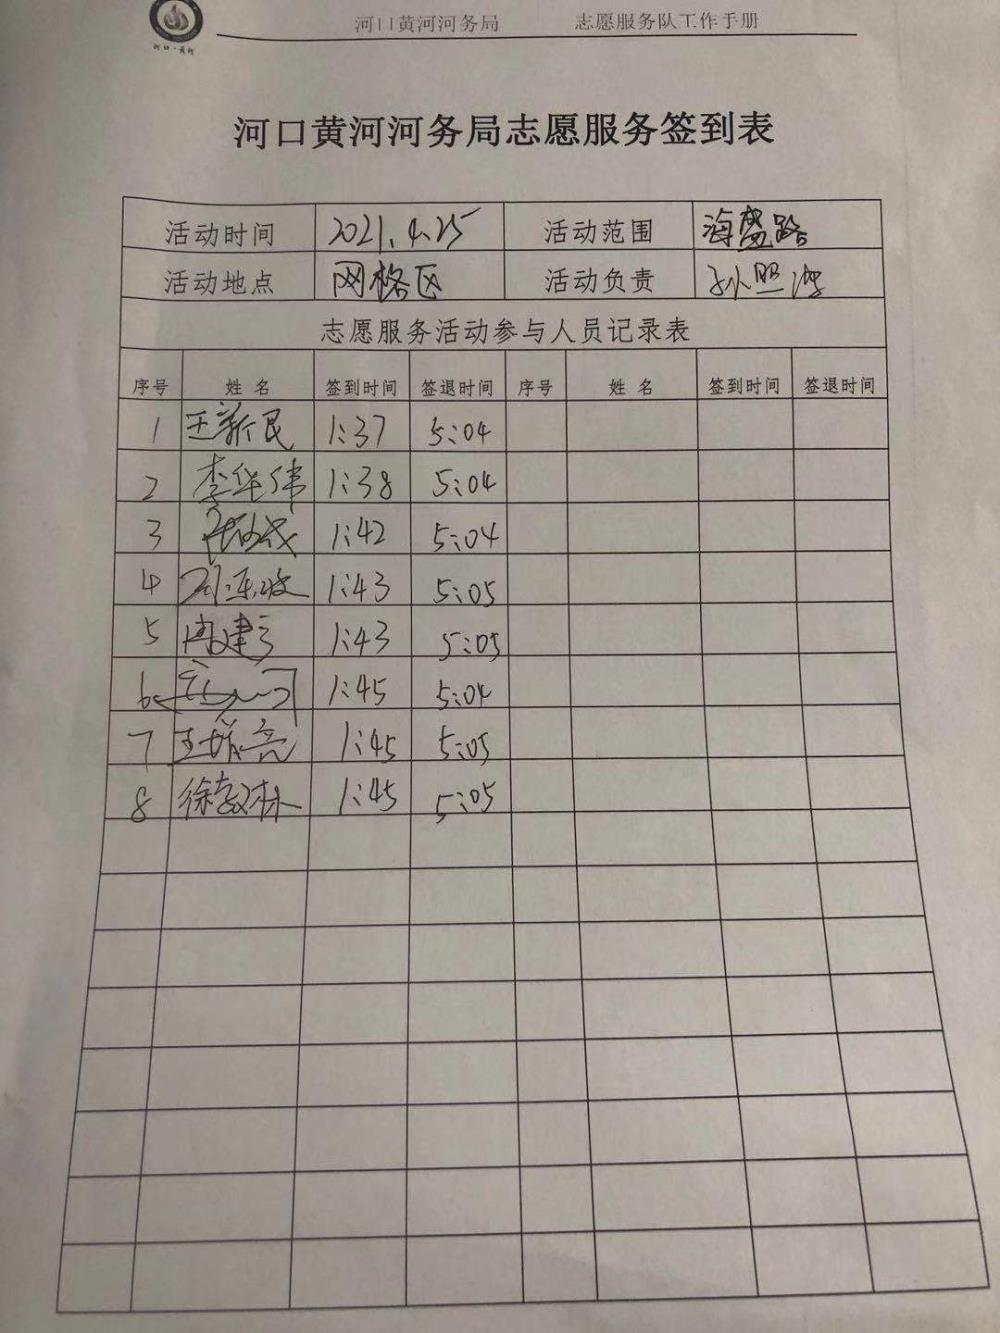 河口·黄河
河口黄河河务局 志愿服务队工作手册
河口黄河河务局志愿服务签到表
活动时间 2021.4.25 活动范围 海盛路
活动地点 网格区 活动负责 孙照
志愿服务活动参与人员记录表
序号 姓名 签到时间 签退时间 序号 姓名 签到时间 签退时间
1 王新民 1:37 5:04
2 李华伟 1:38 5:04
3 1:42 5:04
4 1:43 5:05
5 冉建 1:43 5:05
6 1:45 5:04
7 王增亮 1:45 5:05
8 徐敬林 1:45 5:05